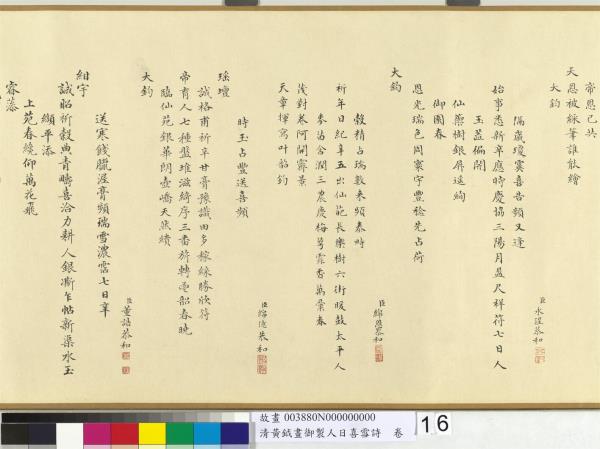 帝恩已共
天恩被綵筆誰能繪
大鈞
隔歲瓊霙喜告頻又逢
始事悉新辛應時慶協三陽月盈尺祥符七日人
玉盖偏開
仙蘂樹銀屏遠絢
御園春
恩光瑞色周寰宇豐稔先占荷
大鈞
臣永瑆恭和
穀精占瑞歲來頻泰時
祈年日紀辛五出仙葩長樂樹六街暖鼓太平人
麥沾含潤三農慶梅萼霏香萬彙春
茂對卷阿開霽景
天章揮寫叶韶鈞
臣綿恩恭和
時玉占豐送喜頻
瑤壇
誠格甫祈辛甘膏豫識田多稼綵勝欣符
帝育人七種盤堆滋綺序三番旂轉麗韶春曉
臨仙苑銀華朗壺嶠天然績
大鈞
臣綿億恭和
送寒餞臘渥膏頻瑞雪濃霑七日辛
紺宇
誠昭祈穀典青疇喜洽力耕人銀澌乍帖新渠水玉
纈平添
上苑春繞仰萬花飛
睿藻
臣董誥恭和
故畫 003880N000000000
清黃鉞畫御製人日喜雪詩 卷
16